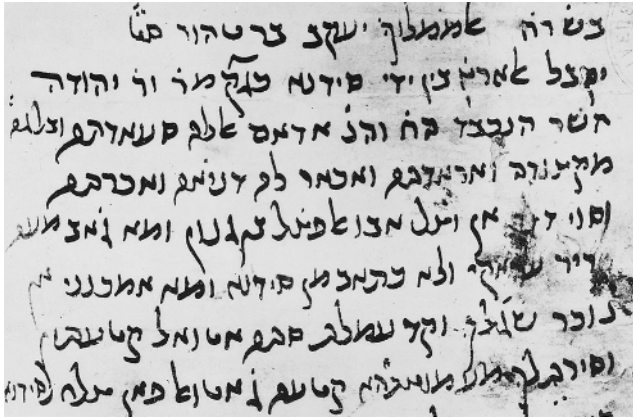 בשרח אלממלוך יעקב בר טהור
יקבל אלארץ בין ידי סידנא כגק מר ור יהודה
השר הנכבד אדאם אללה סעאדתה ובלגה
מקצודה ואראדתה ואכאר לה דניאה ואכרתה
וסוי דלך אן וצל אבו אלפצל ומא גאב מעה
עראקי ולא כתאב מן סידנא ומא אמכנני אן
שגלך וקד עמלת סתה אטואל קטעתין
וסירת לך מע קטעה ג אטואל פאן לסידנא